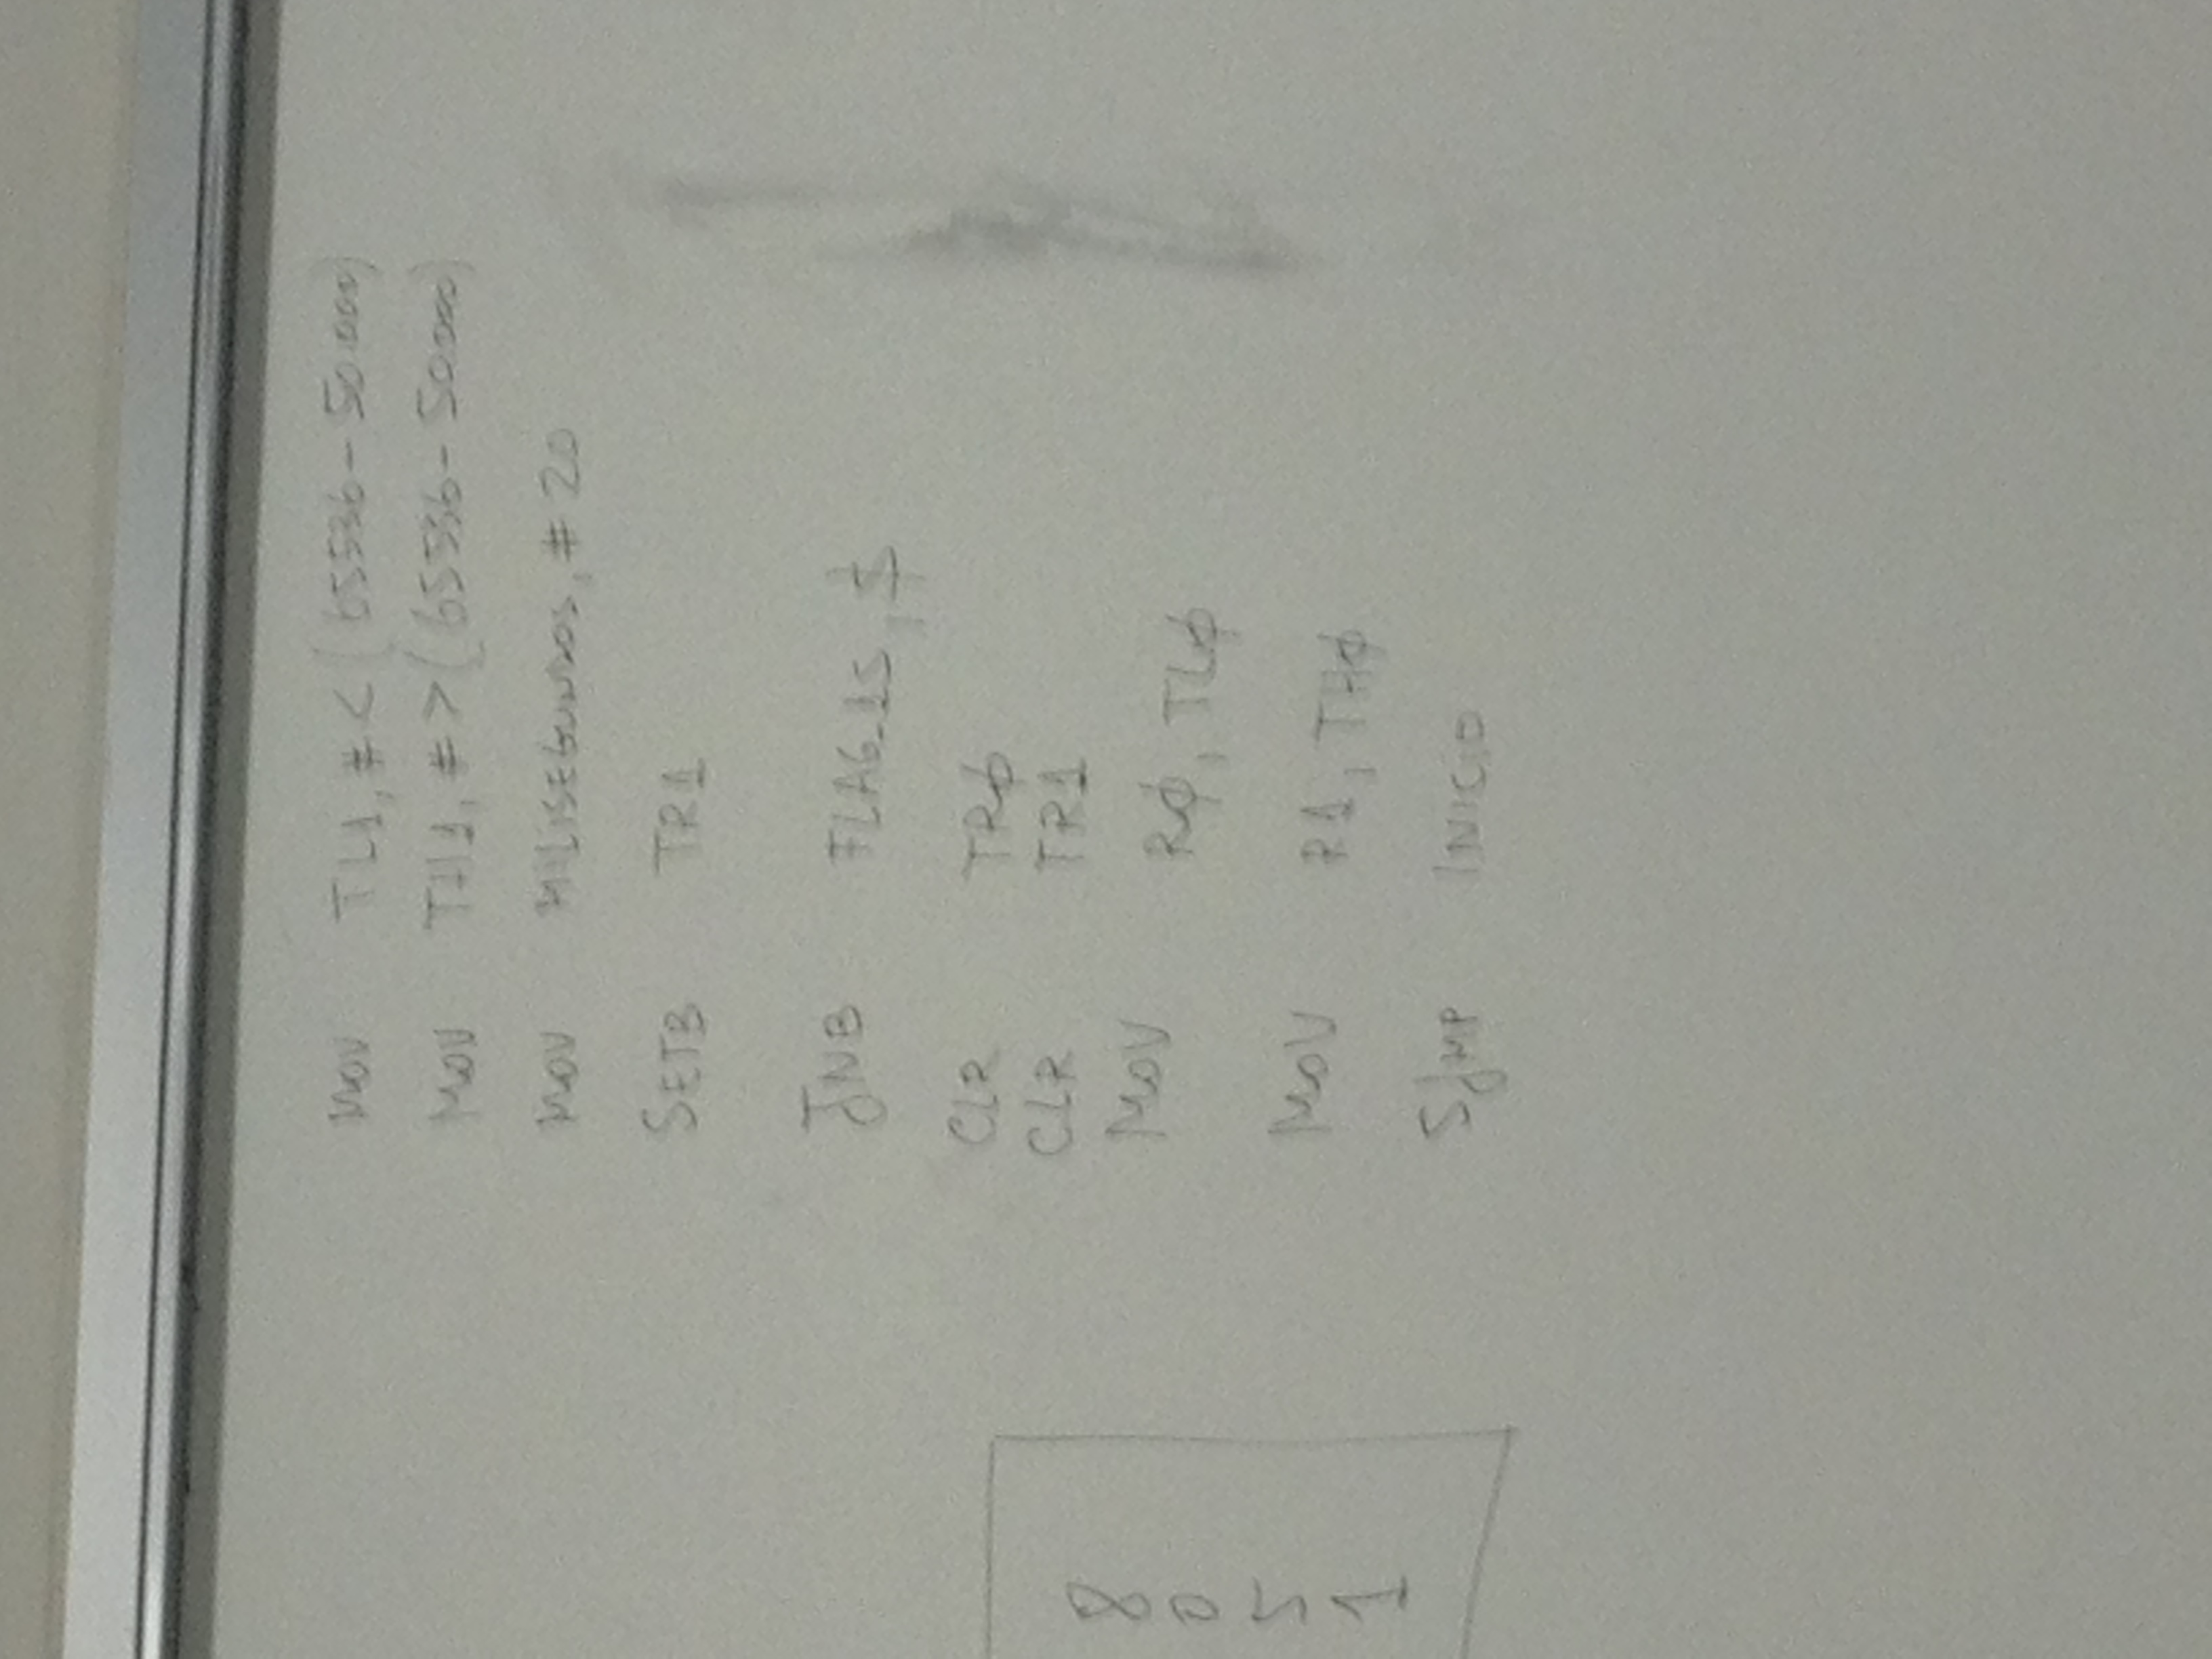 MOV TL1, #<(65536-50.000)
MOV TH1, #>(65536-50.000)
MOV MILISEGUNDOS, #20
SETB TR1
JNB FLAG_1S, $
CLR TRØ
CLR TR1
MOV RØ, TLØ
MOV R1, THØ
SJMP INICIO
8
0
5
1